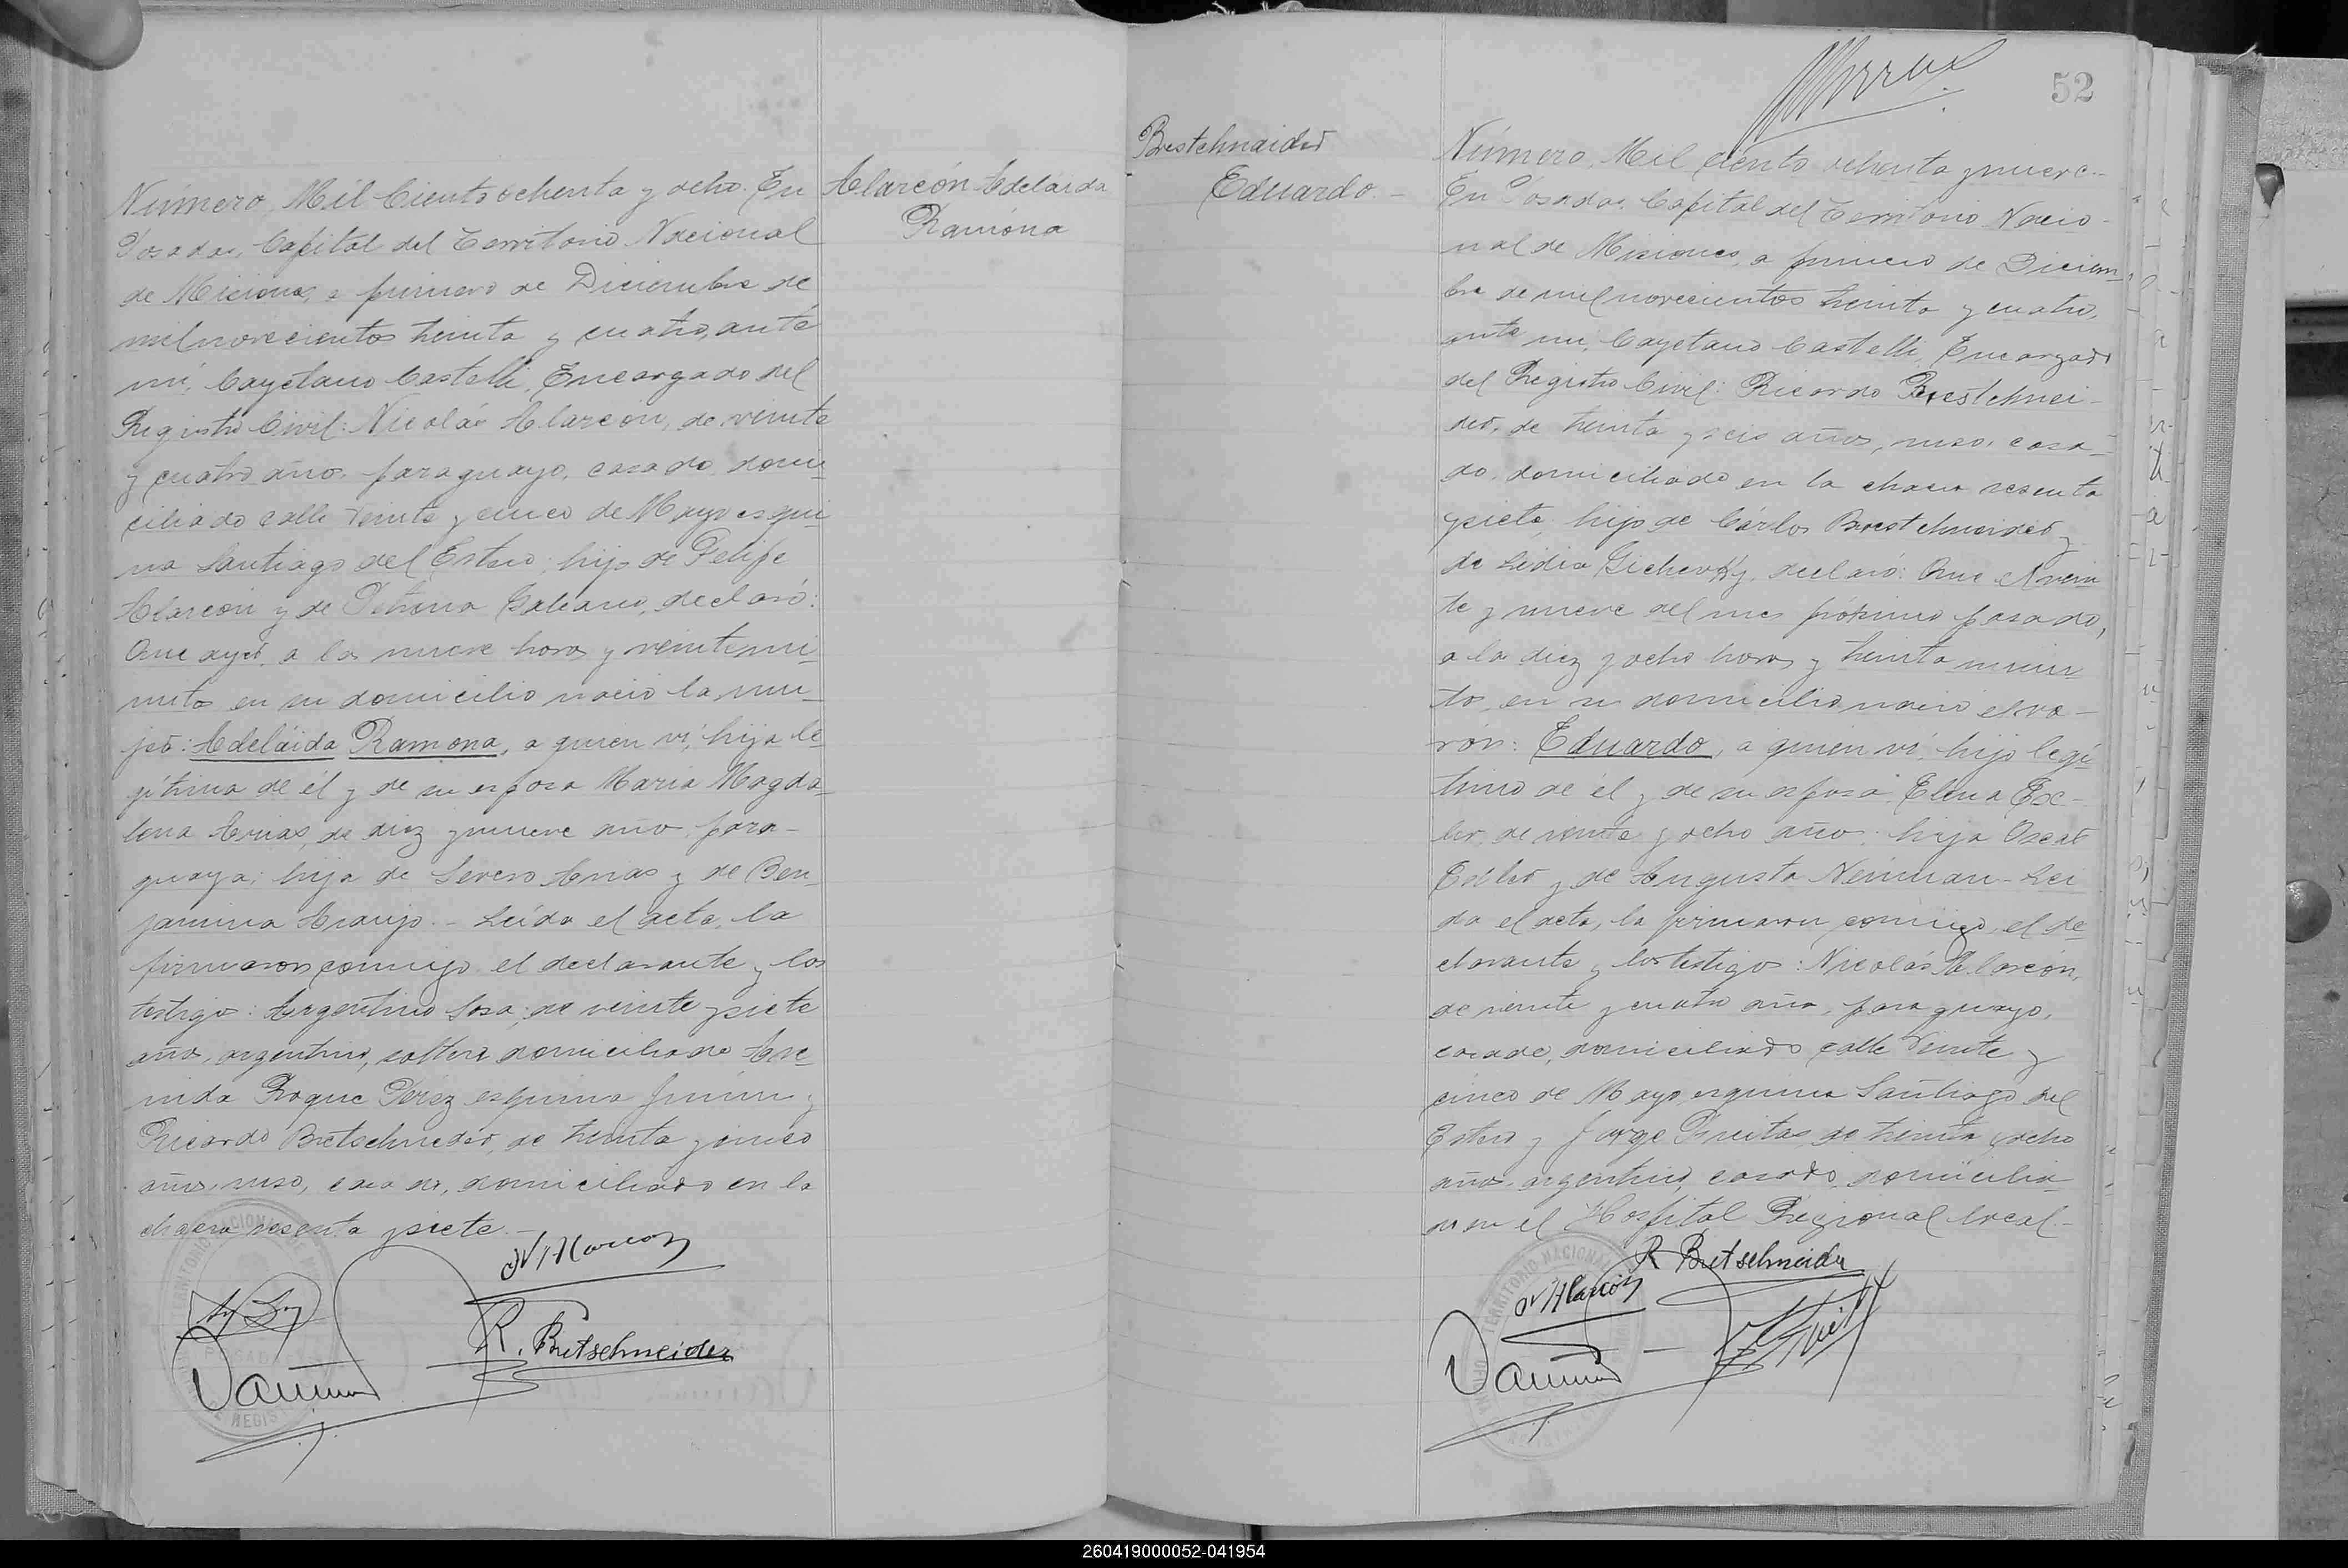 Número Mil Ciento ochenta y ocho. En
Posadas, Capital del Territorio Nacional
de Misiones, a primero de Diciembre de
mil novecientos treinta y cuatro, ante
mí, Cayetano Castelli, Encargado del
Registro Civil: Nicolás Alarcón, de veinte
y cuatro años, paraguayo, casado, domi-
ciliado calle Veinte y cinco de Mayo esqui-
na Santiago del Estero, hijo de Felipe
Alarcón y de Petrona Galeano, declaró:
Que ayer, a las nueve horas y veinte mi-
nutos en su domicilio nació la mu-
jer: Adelaida Ramona, a quien ví, hija le-
gítima de él y de su esposa María Magda-
lena Arias, de diez y nueve años, para-
guaya; hija de Severo Arias y de Ben-
jamina Araujo.- Leída el acta, la
firmaron conmigo el declarante y los
testigos: Argentino Sosa, de veinte y siete
años, argentino, soltero, domiciliado Ave-
nida Roque Pérez esquina Junín y
Ricardo Bretschneder, de treinta y cinco
años, ruso, casado, domiciliado en la
chacra sesenta y siete.-
N Alarcon
R. Bretschneider
Alarcón Adelaida
Ramóna
52
Brestchnaider
Eduardo.-
Número Mil ciento ochenta y nueve.-
En Posadas, Capital del Territorio Nacio-
nal de Misiones, a primero de Diciem-
bre de mil novecientos treinta y cuatro,
ante mí, Cayetano Castelli, Encargado
del Registro Civil: Ricardo Brestchnei-
der, de treinta y seis años, ruso, casa-
do, domiciliado en la chacra sesenta
y siete, hijo de Cárlos Brestchneider y
de Lidia declaró: Que el vein
te y nueve del mes próximo pasado,
a la diez y ocho horas y treinta minu-
tos, en su domicilio nació el va-
rón: Eduardo, a quien ví, hijo legí-
timo de él y de su esposa Elena Ex-
ler, de veinte y ocho años, hija Oscar
Exler y de Augusta Neiman.- Leí
da el acta, la firmaron conmigo, el de-
clarante y los testigos: Nicolás Alarcón,
de veinte y cuatro años, paraguayo,
casado, domiciliado calle Veinte y
cinco de Mayo esquina Santiago del
Estero y Jorge Freitas de treinta y ocho
años, argentino, casado, domicilia-
do en el Hospital Regional local.-
R Bretschneider
N Alarcón
260419000052-041954